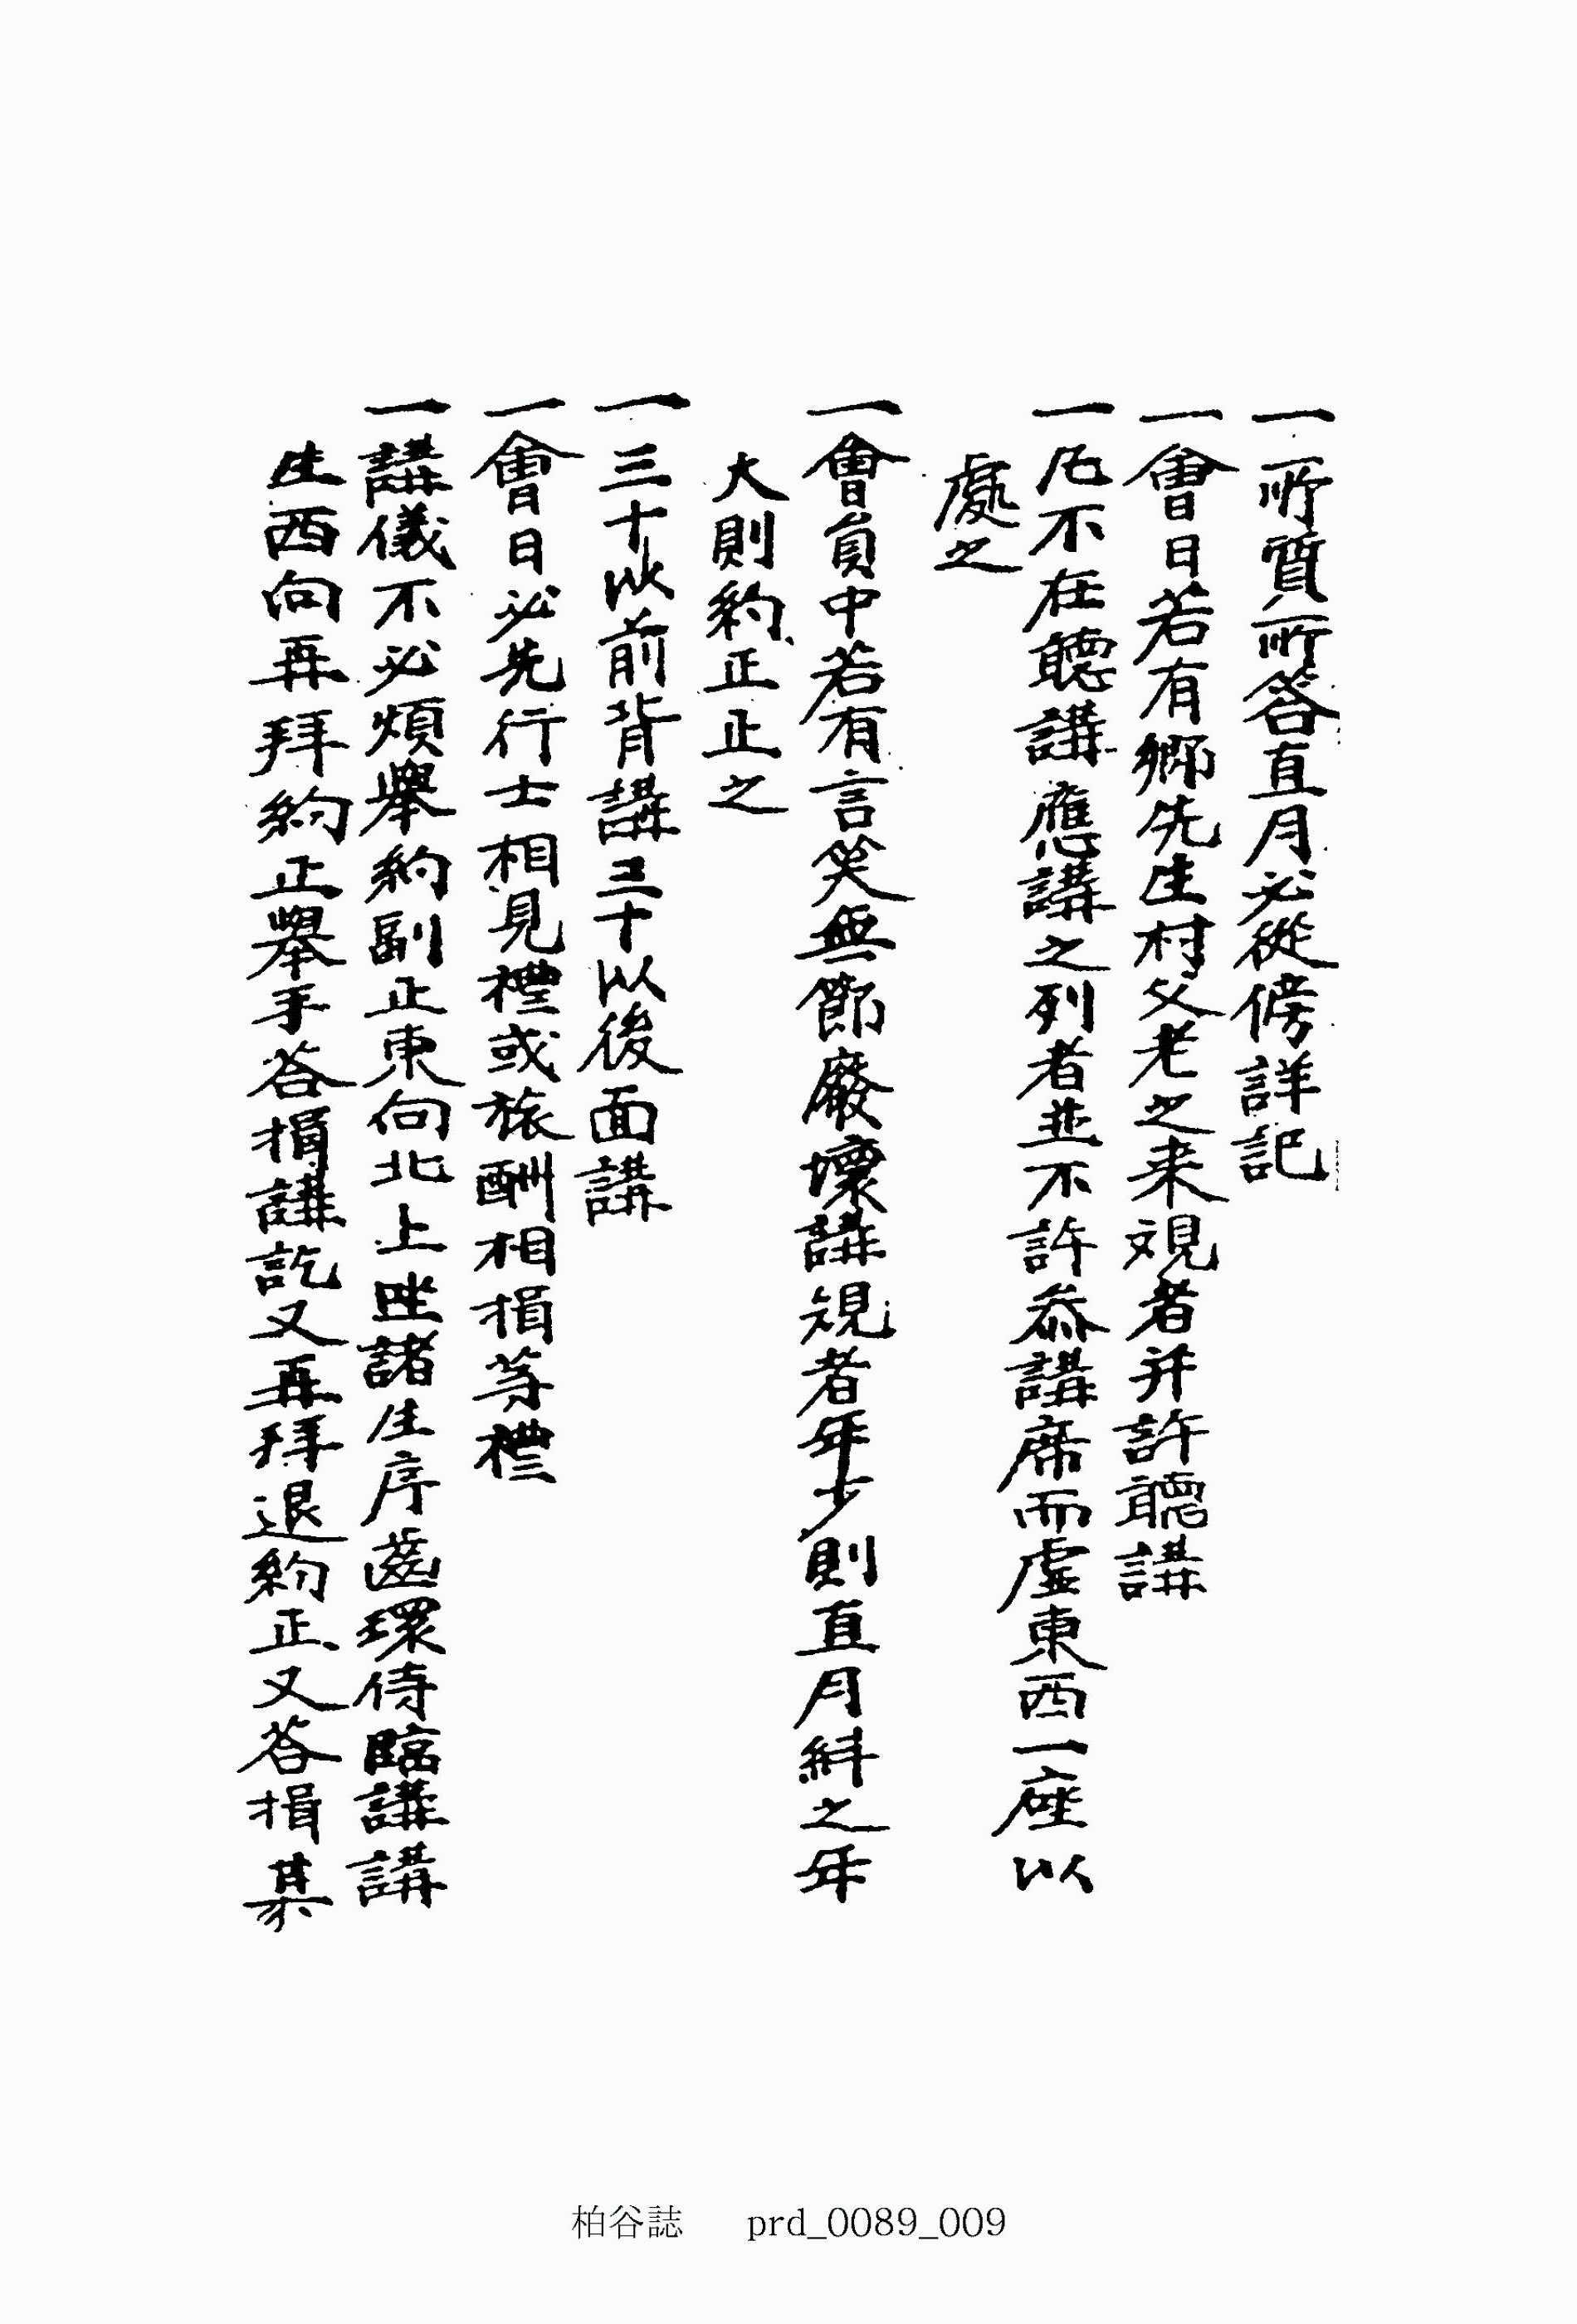 一所質所答直月必從傍詳記
一會日若有鄕先生村父老之来觀者并許聽講
一凡不在聽講應講之列者並不許叅講席而虛東西一座以
處之
一會員中若有言笑無節廢壞講規者年少則直月糾之年
大則約正止之
一三十以前背講三十以後面講
一會日必先行士相見禮或旅酬相揖等禮
一講儀不必煩擧約副正東向北上坐諸生序齒環侍臨講講
生西向再拜約正擧手答揖講訖又再拜退約正又答揖其
柏谷誌 prd_0089_009